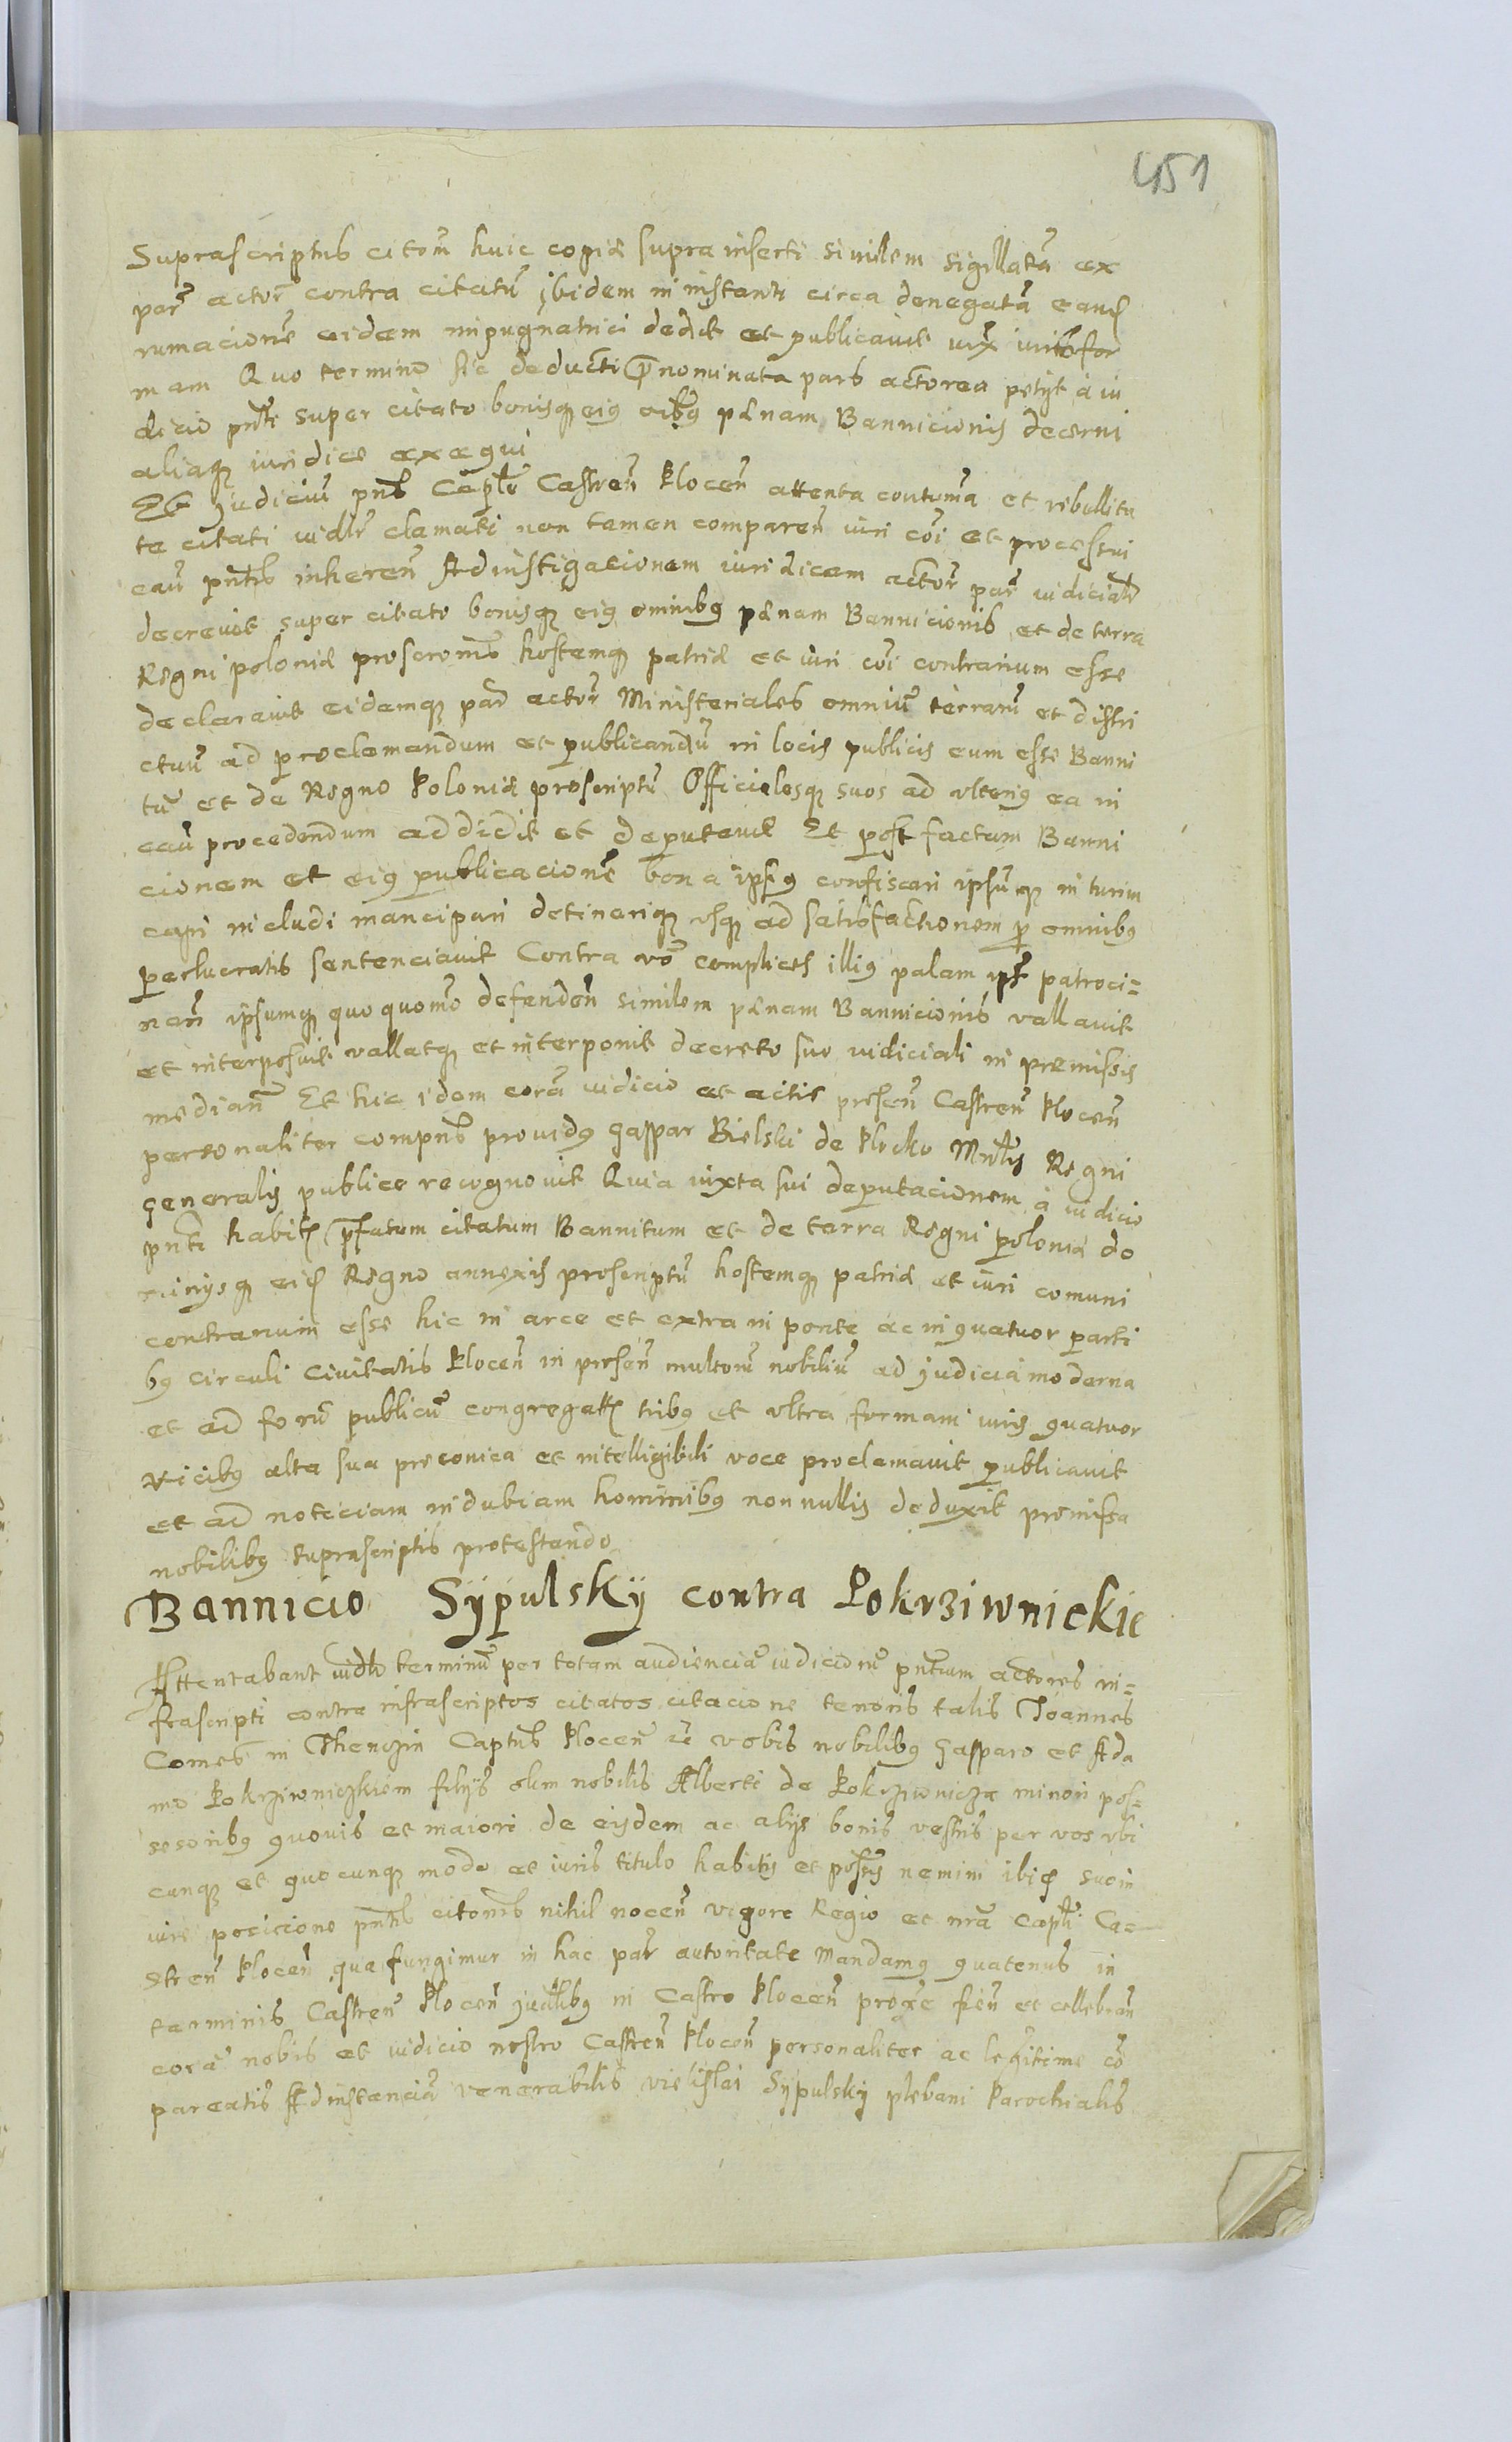 451
Suprascriptus citom̃ huic copiæ supra inserti similem sigillatã ex
par̃ actor̃ contra citatũ ibidem in instanti circa denegatã eand
rumacionẽ eidem impugnatrici dedit et publicavit iux iuris for
mam Quo termino sic deducti p̃nominata pars actorea petijt a iu
dicio pñti super citato bonisq eig oibg pænam Bannicionis decerni
aliaq iuridice exequi
Et Judiciũ pñs Caplẽ Castreñ Plocen̄ attenta contuma et rebellita
te citati iudlr clamati non tamen compareñ iuri coi et processui
cauf pñtis inhereñ Ad instigacionem iuridicam actor̃ par̃ iudicialr
decrevit super citato bonisq eig omnibg pænam Bannicionis et de terra
Regni poloniæ proscrom̃s hostemq patriæ et iuri coi contrarium esse
declaravit eidemq par̃ actor̃ Ministeriales omniũ terrarũ et distri
ctuũ ad proclamandum et publicandũ in locis publicis eum esse Banni
tũ et de Regno Poloniæ proscriptũ Officialesq suos ad ulterig ea in
cau procedendum addidit et deputavit Et post factam Banni
cionem et eig publicacionẽ bona ipsig confiscari ipsũq in turrim
capi includi mancipari detineriq usq ad satisfactionem p omnibg
perlucratis sentenciavit Contra vo complices illig palam ipsi patroci=
nañ ipsumq quoquomo defendeñ similem pænam Bannicionis vallavit
et interposuit vallatq et interponit decreto suo iudiciali in premissis
mediañ Et hic idem corã iudicio et actis preseñ Castreñ Ploceñ
personaliter compñs providg Gaspar Bielski de Plocko Mnlis Regni
generalis publice recognovit Quia iuxta sui deputacionem a iudicio
pñti habit p̃fatum citatum Bannitum et de terra Regni polonia do
minijsq eid Regno annexis proscriptũ hostemq patriæ et iuri comuni
contrarium esse hic in arce et extra in ponte ac in quatuor parti
bg circuli Civitatis Ploceñ in preseñ multorũ nobiliũ ad Judicia moderna
et ad forũ publicũ congregatt tribg et ultra formam iuris quatuor
vicibg alta sua preconica et intelligibili voce proclamavit publicavit
et ad noticiam indubiam hominibg nonnullis deduxit premissa
nobilibg suprascriptis protestando
Bannicio Sypulsky contra Pokrziwnickie
Attentabant iudlr terminũ per totam audienciã iudiciorũ pñtium actores in=
frascripti contra infrascriptos citatos citacione tenoris talis Joannes
Comes in Thenczin Captñs Ploceñ etc vobis nobilibg Gasparo et Ada
mo Pokrziwniczkiem filijs olim nobilis Alberti de Pokrziwnicza minori pos=
sesoribg quovis et maiori de eijsdem ac alijs bonis vestris per vos ubi
cunq et quocunq modo ac iuris titulo habitis et possis nemini ibid suo in
iure posicione pñtis citonis nihil noceñ vigore Regio et nrã capli Ca=
streñ Ploceñ qua fungimur in hac par autoritate Mandamg quatenus in
terminis Castreñ Ploceñ Judlibg in Castro Ploceñ proxe fieñ et cellebrañ
corã nobis et iudicio nostro Castreñ Ploceñ personaliter ac legitime co
pareatis Ad instanciã venerabilis vielislai Sypulsky plebani Parochialis